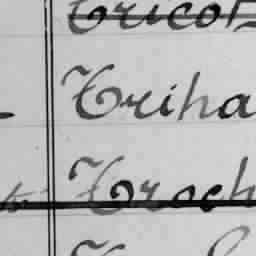 Tricot
Triha
Troch